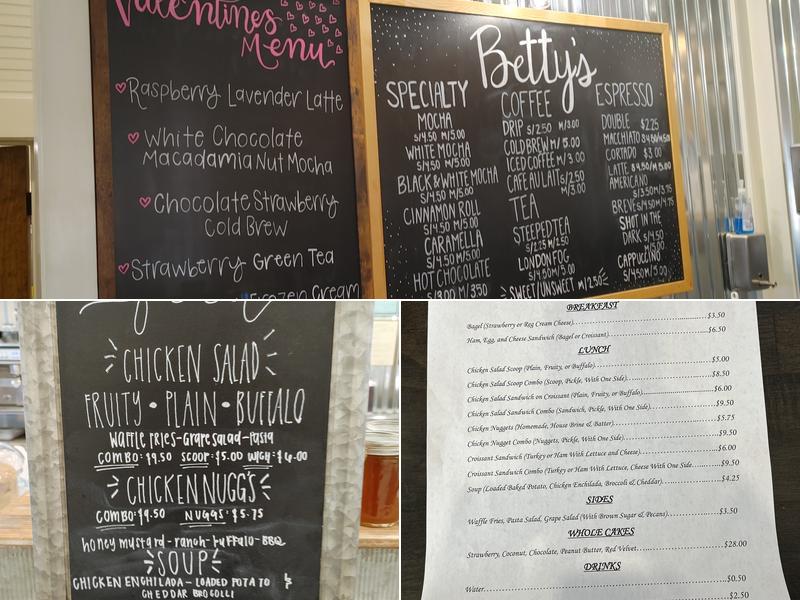 Valentines
Menu
Raspberry Lavender Latte
White Chocolate
Macadamia Nut Mocha
Chocolate Strawberry
Cold Brew
Strawberry Green Tea
Frozen Cream
Betty's
SPECIALTY
MOCHA
S/4.50 M/5.00
WHITE MOCHA
S/4.50 M/5.00
BLACK & WHITE MOCHA
S/4.50 M/5.00
CINNAMON ROLL
S/4.50 M/5.00
CARAMELLA
S/4.50 M/5.00
HOT CHOCOLATE
S/3.00 M/3.50
COFFEE
DRIP S/2.50 M/3.00
COLD BREW M/5.00
ICED COFFEE M/3.00
CAFE AU LAIT S/2.50
M/3.00
TEA
STEEPED TEA
S/2.25 M/2.50
LONDON FOG
S/4.50 M/5.00
SWEET/UNSWEET M/2.50
ESPRESSO
DOUBLE $2.25
MACCHIATO
CORTADO $3.00
LATTE $4.50/M/5.00
AMERICANO
S/3.50 M/3.75
BREVE S/4.50 M/4.75
SHOT IN THE
DARK S/4.50
M/5.00
CAPPUCCINO
S/4.50 M/5.00
CHICKEN SALAD
FRUITY • PLAIN • BUFFALO
WAFFLE FRIES-GRAPE SALAD-PASTA
COMBO: $9.50 SCOOP: $5.00 WICH: $6.00
CHICKEN NUGG'S
COMBO: $9.50 NUGGS: $5.75
honey mustard - ranch - buffalo - BBQ
SOUP
CHICKEN ENCHILADA - LOADED POTATO
CHEDDAR BROCOLLI
BREAKFAST
Bagel (Strawberry or Reg Cream Cheese)........$3.50
Ham, Egg, and Cheese Sandwich (Bagel or Croissant)........$6.50
LUNCH
Chicken Salad Scoop (Plain, Fruity, or Buffalo)........$5.00
Chicken Salad Scoop Combo (Scoop, Pickle, With One Side)........$8.50
Chicken Salad Sandwich on Croissant (Plain, Fruity, or Buffalo)........$6.00
Chicken Salad Sandwich Combo (Sandwich, Pickle, With One Side)........$9.50
Chicken Nuggets (Homemade, House Brine & Batter)........$5.75
Chicken Nugget Combo (Nuggets, Pickle, With One Side)........$9.50
Croissant Sandwich (Turkey or Ham With Lettuce and Cheese)........$6.00
Croissant Sandwich Combo (Turkey or Ham With Lettuce, Cheese With One Side........$9.50
Soup (Loaded Baked Potato, Chicken Enchilada, Broccoli & Cheddar)........$4.25
SIDES
Waffle Fries, Pasta Salad, Grape Salad (With Brown Sugar & Pecans)........$3.50
WHOLE CAKES
Strawberry, Coconut, Chocolate, Peanut Butter, Red Velvet........$28.00
DRINKS
Water........$0.50
$2.50